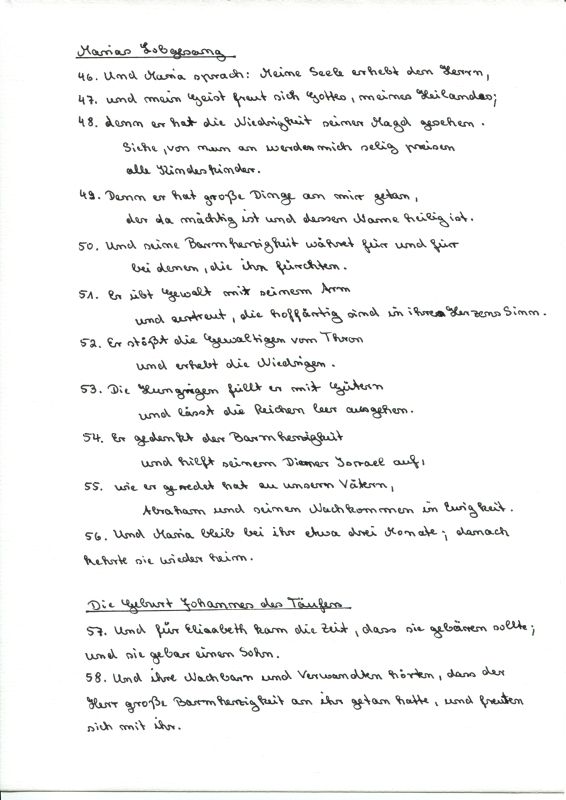 Marias Lobgesang
46. Und Maria sprach: Meine Seele erhebt den Herrn,
47. und mein Geist freut sich Gottes, meines Heilandes;
48. denn er hat die Niedrigkeit seiner Magd gesehen.
Siehe, von nun an werden mich selig preisen
alle Kindeskinder.
49. Denn er hat große Dinge an mir getan,
der da mächtig ist und dessen Name heilig ist.
50. Und seine Barmherzigkeit währet für und für
bei denen, die ihn fürchten.
51. Er übt Gewalt mit seinem Arm
und zerstreut, die hoffärtig sind in ihres Herzens Sinn.
52. Er stößt die Gewaltigen vom Thron
und erhebt die Niedrigen.
53. Die Hungrigen füllt er mit Gütern
und lässt die Reichen leer ausgehen.
54. Er gedenkt der Barmherzigkeit
und hilft seinem Diener Israel auf,
55. wie er geredet hat zu unsern Vätern,
Abraham und seinen Nachkommen in Ewigkeit.
56. Und Maria blieb bei ihr etwa drei Monate; danach
kehrte sie wieder heim.
Die Geburt Johannes des Täufers
57. Und für Elisabeth kam die Zeit, dass sie gebären sollte;
und sie gebar einen Sohn.
58. Und ihre Nachbarn und Verwandten hörten, dass der
Herr große Barmherzigkeit an ihr getan hatte, und freuten
sich mit ihr.